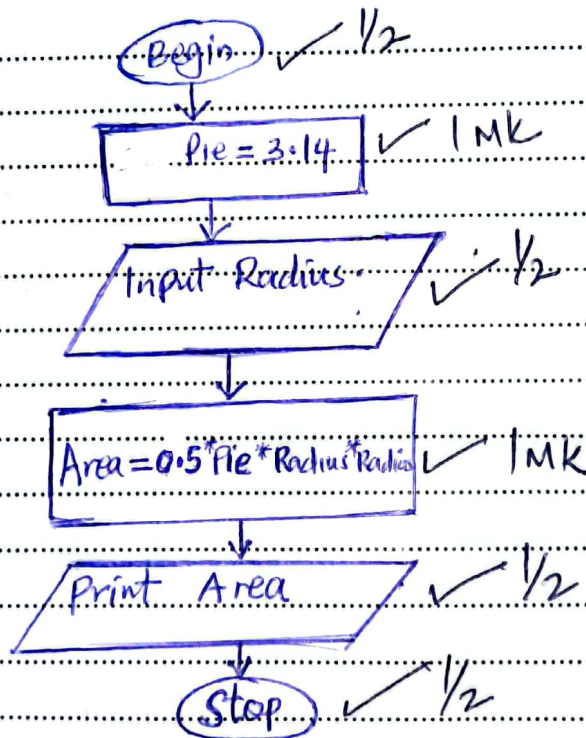 Begin ✓ 1/2
Pie = 3.14 ✓ 1 MK
Input Radius. ✓ 1/2
Area = 0.5*Pie*Radius*Radius ✓ 1 MK
Print Area ✓ 1/2
Stop ✓ 1/2